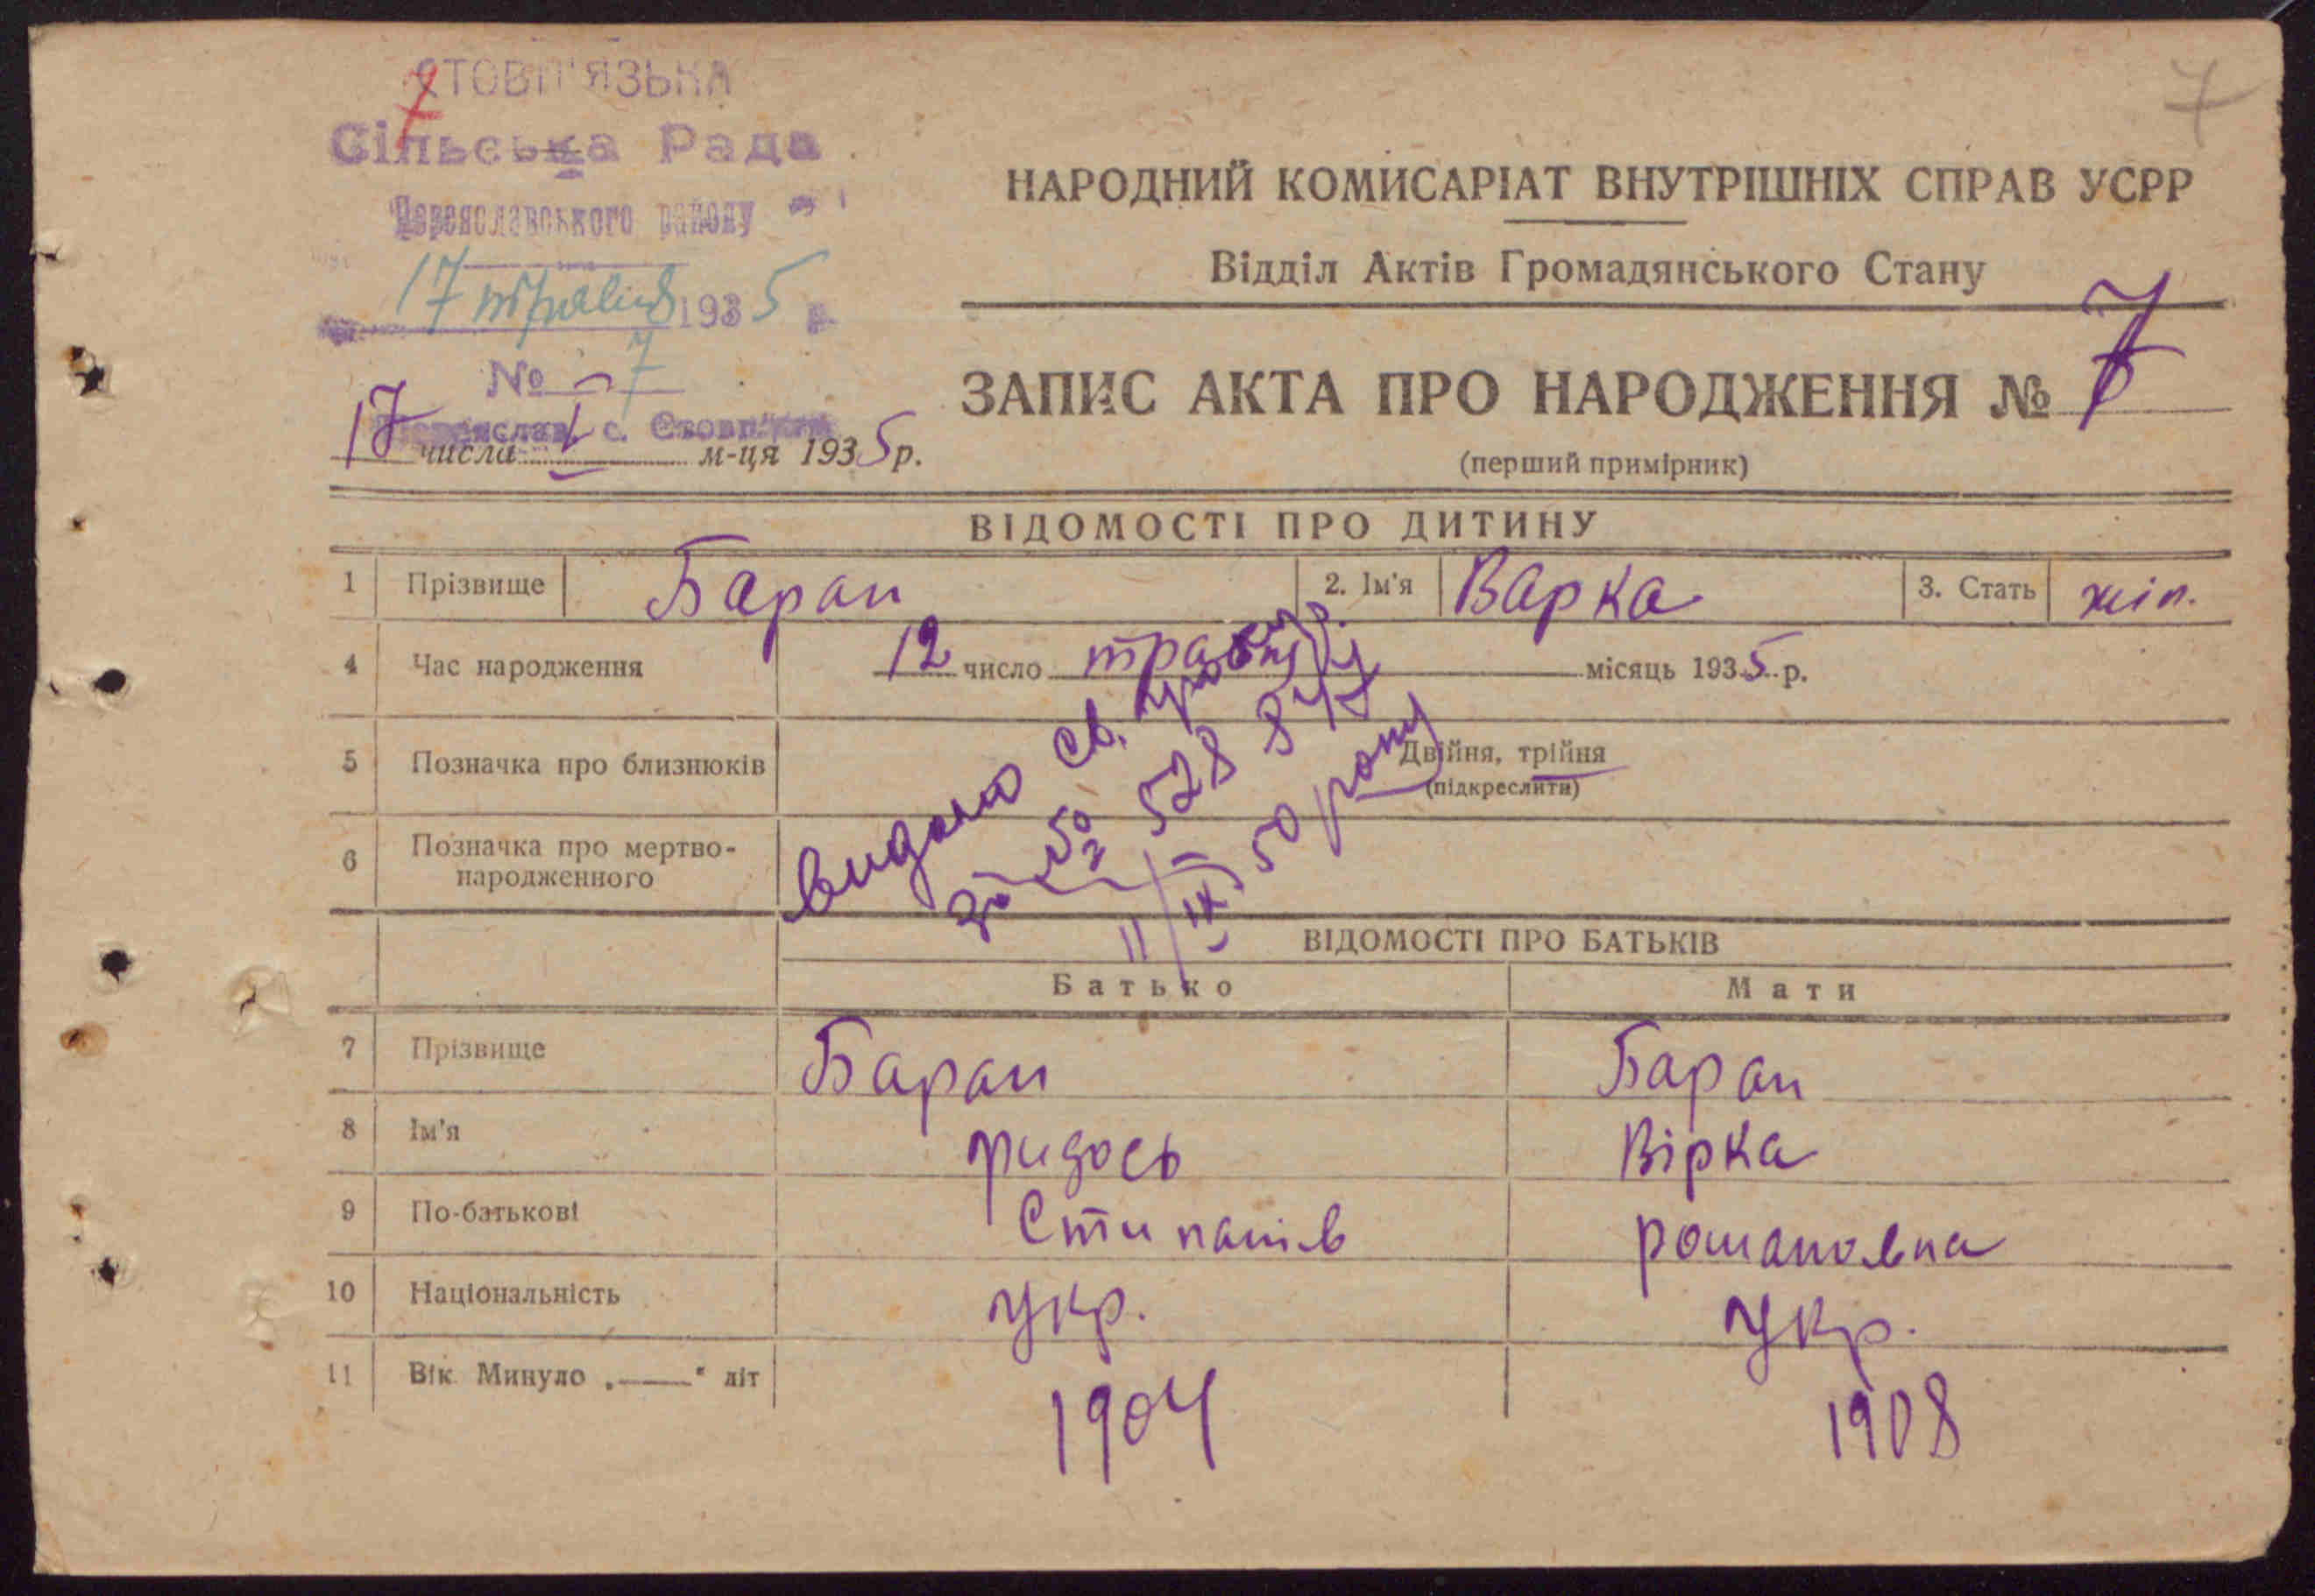 7
СТОВП'ЯЗЬКА
Сільська Рада
Переяславського району
17 травня 1935
№ 7
с. Стовп'яги
17 числа V м-ця 1935 р.
7
НАРОДНИЙ КОМИСАРІАТ ВНУТРІШНІХ СПРАВ УСРР
Відділ Актів Громадянського Стану
ЗАПИС АКТА ПРО НАРОДЖЕННЯ № 7
(перший примірник)
ВІДОМОСТІ ПРО ДИТИНУ
1 Прізвище Баран 2. Ім'я Варка 3. Стать жін.
4 Час народження 12 число травня місяць 1935 р.
5 Позначка про близнюків Двійня, трійня
(підкреслити)
6 Позначка про мертво-
народженного
видано св.
за № 528
11/IX 50 року
ВІДОМОСТІ ПРО БАТЬКІВ
Батько Мати
7 Прізвище Баран Баран
8 Ім'я Вірка
9 По-батькові Романовна
10 Національність Укр. Укр.
11 Вік Минуло „——“ літ 1904 1908